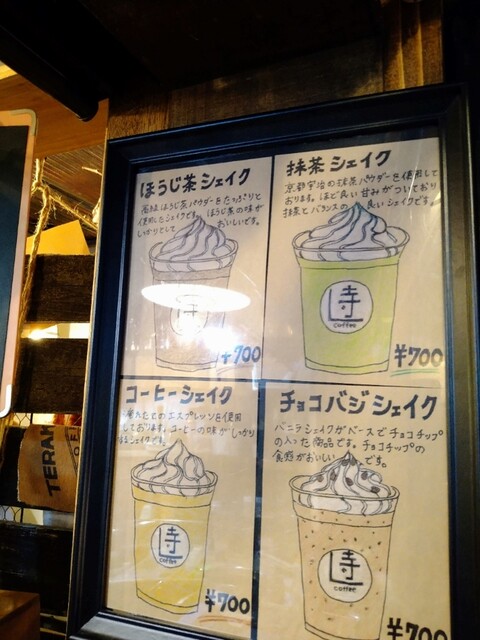 ほうじ茶シェイク
高級ほうじ茶パウダーをたっぷりと
使用したシェイクです。ほうじ茶の味が
しっかりとして
おいしいです。
寺
¥700
抹茶シェイク
京都宇治の抹茶パウダーを使用して
おります。ほど良い甘みがついており
抹茶とバランスの良いシェイクです。
寺
coffee
¥700
コーヒーシェイク
淹れたてのエスプレッソを使用
しております。コーヒーの味がしっかり
シェイクです。
寺
coffee
¥700
チョコバジシェイク
バニラシェイクがベースでチョコチップ
の入った商品です。チョコチップの
食感がおいしいです。
寺
coffee
¥700
TERA